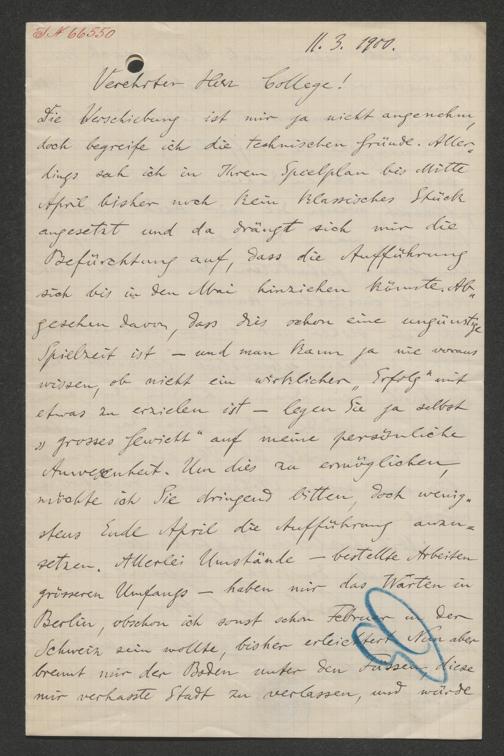 I N 66550
11. 3. 1900.
Verehrter Herr College!
Die Verschiebung ist mir ja nicht angenehm,
doch begreife ich die technischen Gründe. Aller-
dings sah ich in Ihrem Spielplan bis Mitte
April bisher noch kein klassisches Stück
angesetzt und da drängt sich mir die
Befürchtung auf, dass die Aufführung
sich bis in den Mai hinziehen könnte. Ab-
gesehen davon, dass dies schon eine ungünstige
Spielzeit ist – und man kann ja nie voraus
wissen, ob nicht ein wirklicher „Erfolg" mit
etwas zu erzielen ist – legen Sie ja selbst
„grosses Gewicht" auf meine persönliche
Anwesenheit. Um dies zu ermöglichen,
möchte ich Sie dringend bitten, doch wenig-
stens Ende April die Aufführung anzu-
setzen. Allerlei Umstände – bestellte Arbeiten
grösseren Umfangs – haben mir das Warten in
Berlin, obschon ich sonst schon Februar in der
Schweiz sein wollte, bisher erleichtert. Nun aber
brennt mir der Boden unter den Füssen, diese
mir verhasste Stadt zu verlassen, und würde